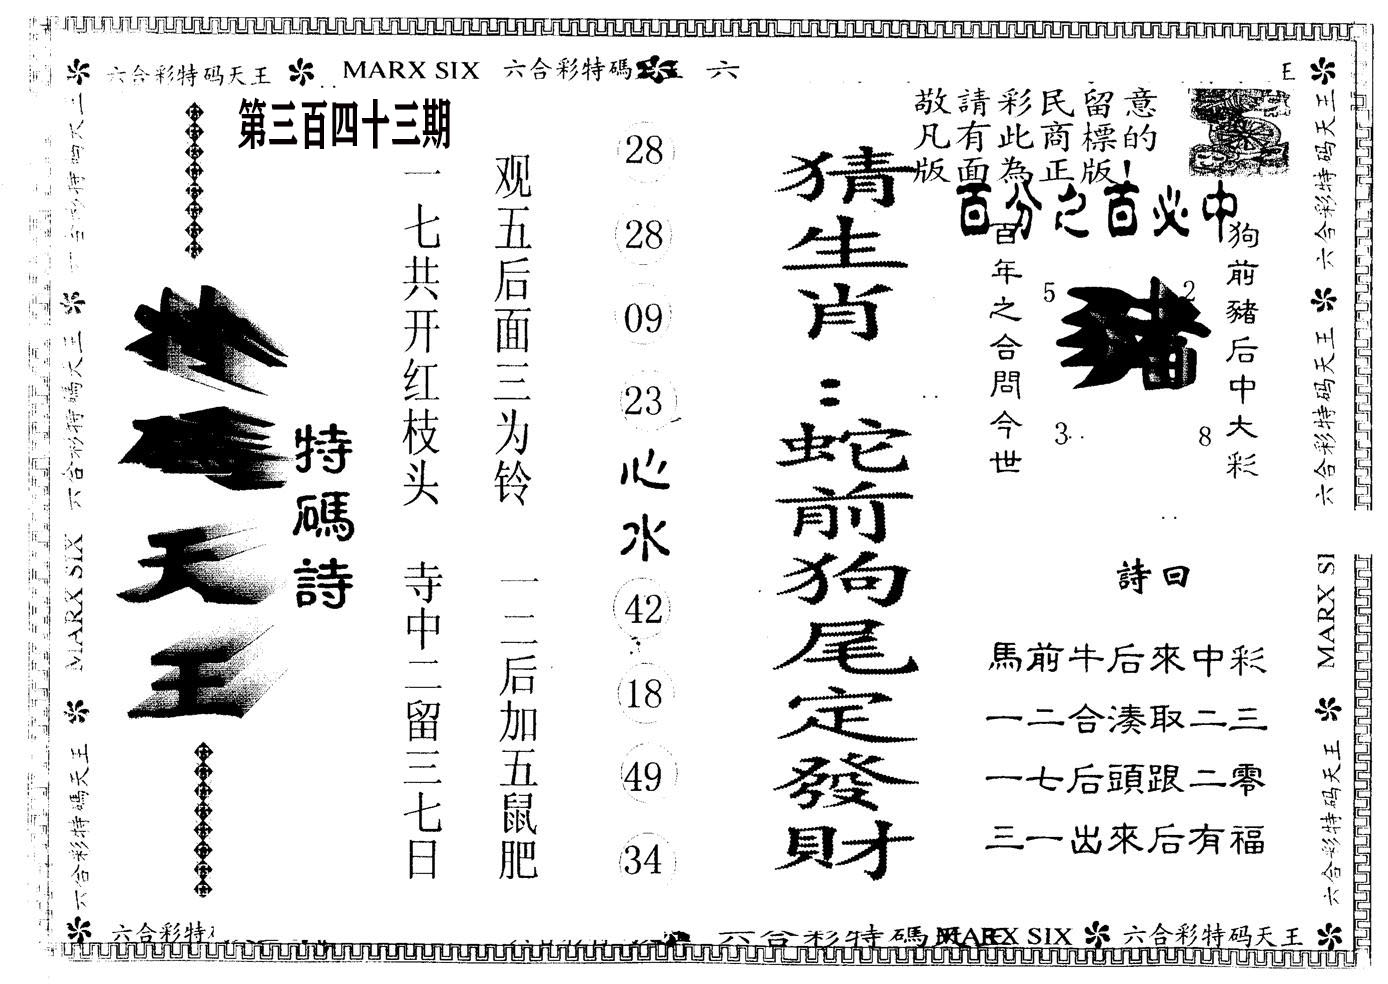 六合彩特码天王 MARX SIX 六合彩特碼 六
第三百四十三期
敬請彩民留意
凡有此商標的
版面為正版!
百分之百必中
特碼詩
天王
一七共开红枝头 寺中二留三七日
观五后面三为铃 一二后加五鼠肥
28
28
09
23
心水
42
18
49
34
猜生肖:蛇前狗尾定發財
百年之合問今世
5 2
豬
3 8
狗前豬后中大彩
詩曰
馬前牛后來中彩
一二合湊取二三
一七后頭跟二零
三一出來后有福
六合彩特码天王
六合彩特碼天王
MARX SIX
六合彩特碼天王
六合彩特码天王
六合彩特码天王
MARX SI
六合彩特码天王
六合彩特
六合彩特碼 MARX SIX 六合彩特码天王